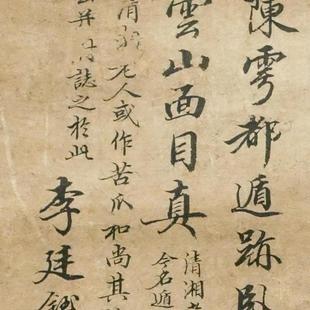 陳雩都遁跡臥
雲山面目真
清湘老
今名遁
清
人或作苦瓜和尚其
并 誌之於此
李廷